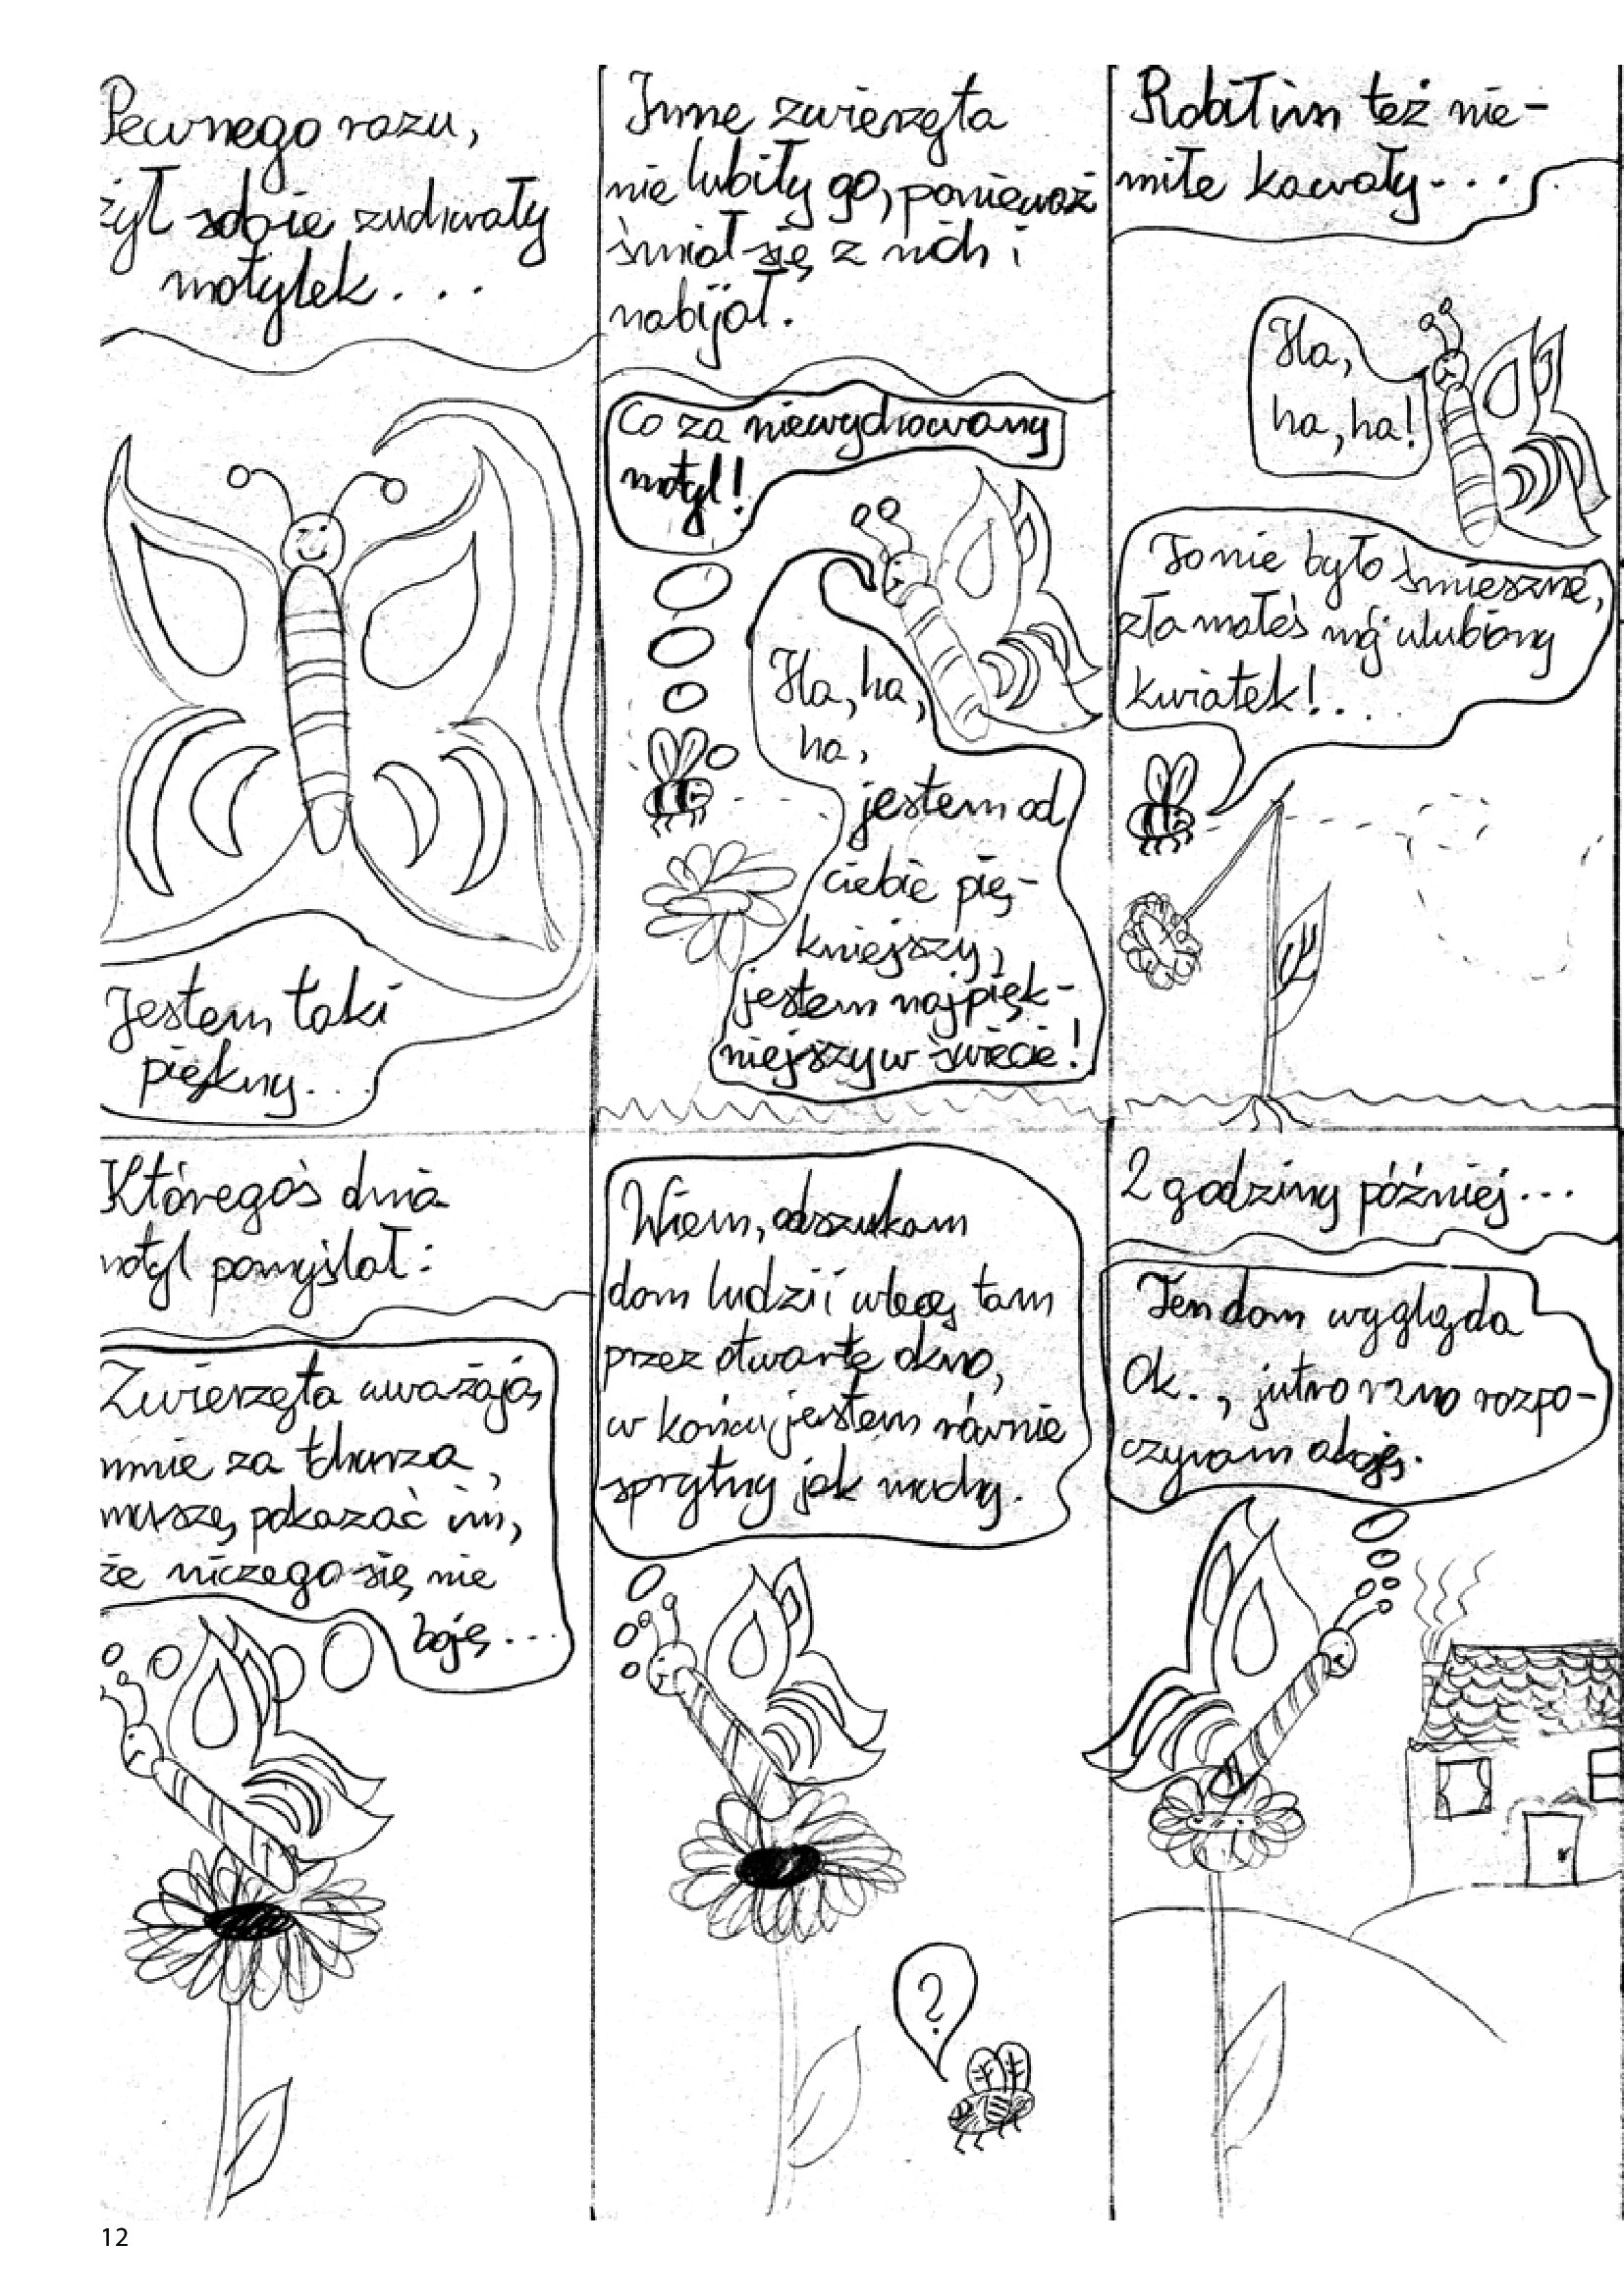 Pewnego razu,
żył sobie zuchwały
motylek...
Jestem taki
piękny...
Inne zwierzęta
nie lubiły go, ponieważ
śmiał się z nich i
nabijał.
Co za niewychowany
motyl!
Ha, ha,
ha,
jestem od
ciebie pię-
kniejszy,
jestem najpięk-
niejszy w świecie!
Robił im też nie-
miłe kawały...
Ha,
ha, ha!
To nie było śmieszne,
złamałeś mój ulubiony
kwiatek!...
Któregoś dnia
motyl pomyślał:
Zwierzęta uważają
mnie za tchórza,
muszę pokazać im,
że niczego się nie
boję...
Wiem, odszukam
dom ludzi i wlecę tam
przez otwarte okno,
w końcu jestem równie
sprytny jak muchy.
?
2 godziny później...
Ten dom wygląda
Ok., jutro rano rozpo-
czynam akcję.
12